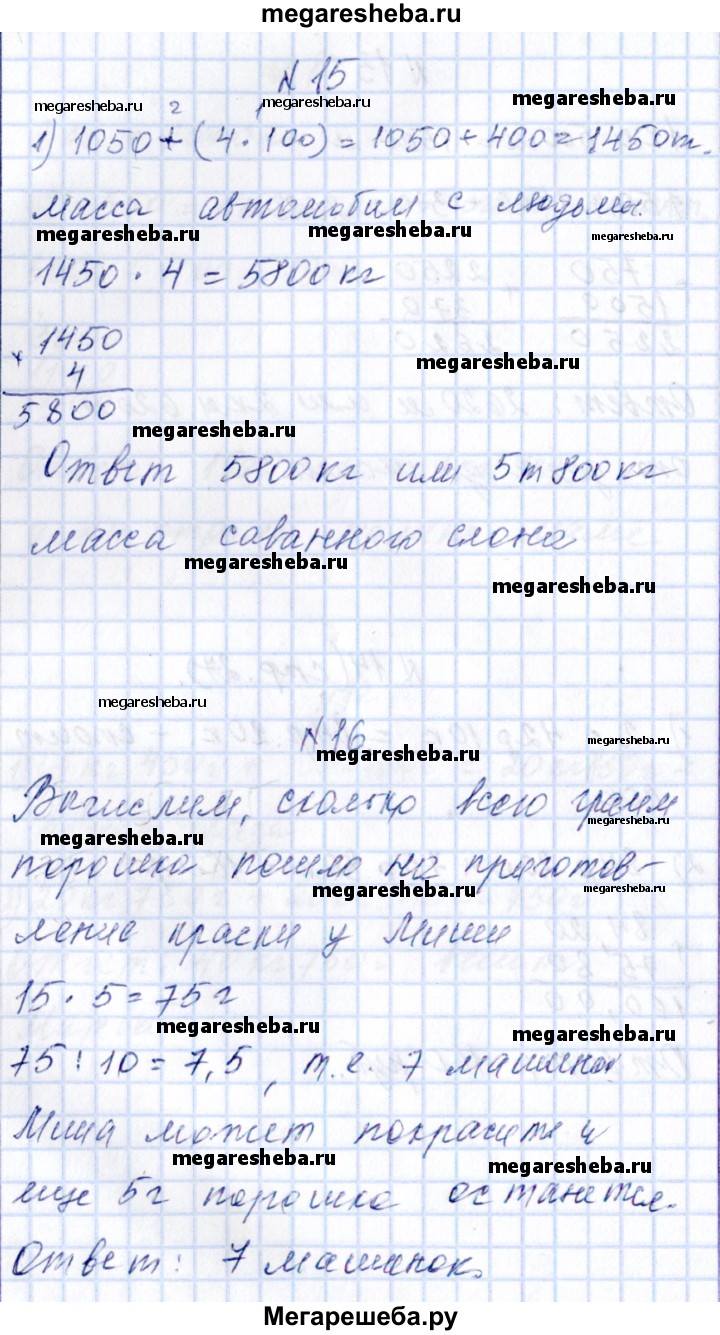 megaresheba.ru
N 15
megaresheba.ru megaresheba.ru megaresheba.ru
2 1
1) 1050 + (4 · 100) = 1050 + 400 = 1450т.
масса автомобиля с людьми.
megaresheba.ru megaresheba.ru megaresheba.ru
1450 · 4 = 5800 кг
× 1450
4
megaresheba.ru
5800
megaresheba.ru
Ответ 5800 кг или 5т 800 кг
масса саванного слона
megaresheba.ru
megaresheba.ru
megaresheba.ru
N 16
megaresheba.ru megaresheba.ru
Вычислим, сколько всего грамм
megaresheba.ru megaresheba.ru
порошка пошло на приготов-
megaresheba.ru megaresheba.ru
ление краски у Миши
15 · 5 = 75 г
megaresheba.ru megaresheba.ru
75 : 10 = 7,5, т.е. 7 машинок
Миша может покрасить и
megaresheba.ru megaresheba.ru
еще 5г порошка останется.
Ответ: 7 машинок.
Мегарешеба.ру